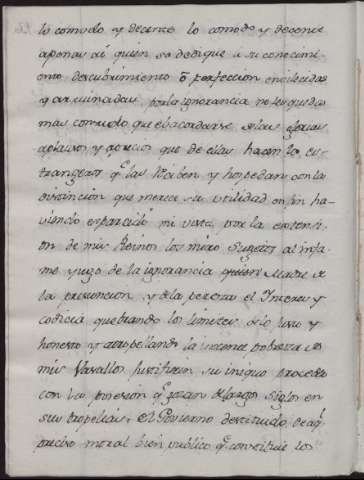 lo comodo y decente lo comodo, y decente
apenas ai quien se dedique a su conocimi
ento descubrimiento o perfeccion envilecidas
y arruinadas por la ignorancia no les queda
mas consuelo que el acordarse de las glorias
aplausos y aprecios que de ellas hacen los es-
trangeros q.e las reciben y hospedan con la
distincion que merece su utilidad en fin ha-
viendo esparcido mi vista por la extensi-
on de mis Reinos los miro sugetos al infa-
me yugo de la ignorancia Madre de
la presuncion y de la pereza el Interes y
codicia quebrando los limites de lo justo y
honesto y atropellando la inocente pobreza de
mis Vasallos justifican su iniquo proceder
con la posesion q.e gozan de largos siglos en
sus tropelias, el Govierno destituido de aq.l
preciso moral bien publico q.e constituie los